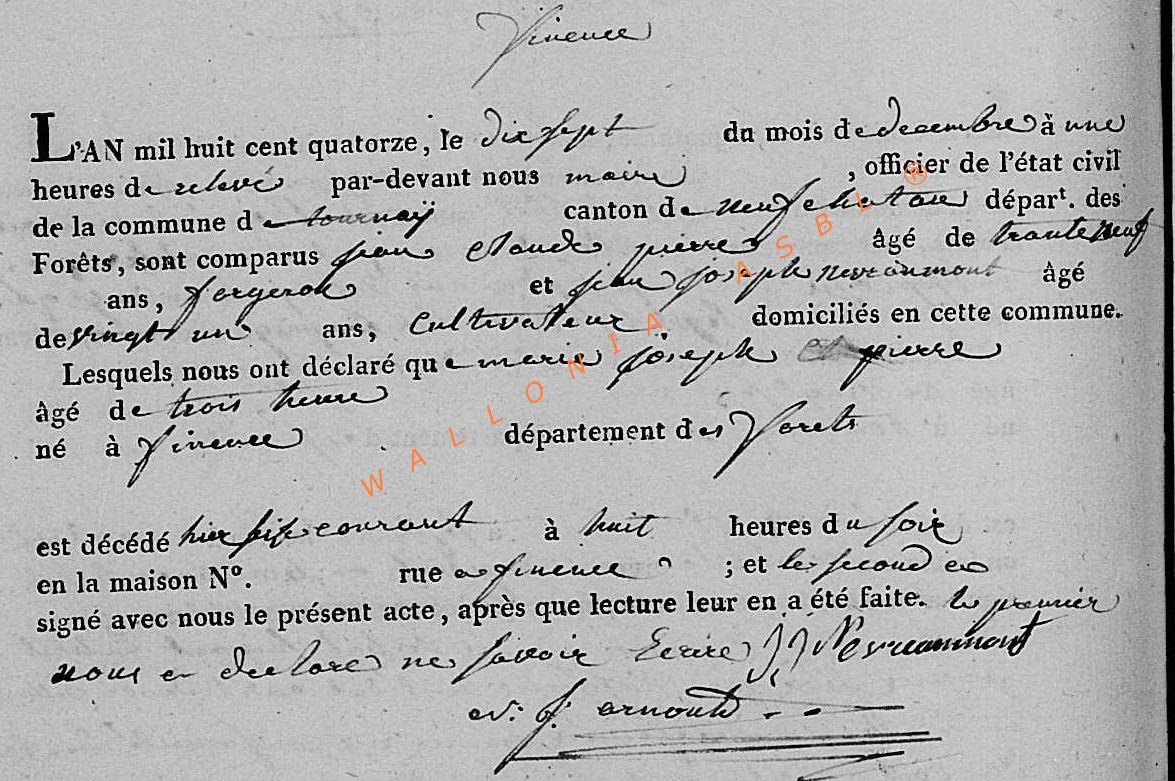 Vinence
L'AN mil huit cent quatorze, le dix sept du mois de decembre à une
heures de relevé par-devant nous maire , officier de l'état civil
de la commune de tournaÿ canton de neufchateau départ. des
Forêts, sont comparus jean claude pierre âgé de trante neuf
ans, forgeron et jean joseph nevraumont âgé
de vingt un ans, cultivateur domiciliés en cette commune.
Lesquels nous ont déclaré que marie joseph pierre
âgé de trois heure
né à Vinence département des Forets
est décédé hier seize courant à huit heures du soir
en la maison N°. rue a Vinence ; et le second a
signé avec nous le présent acte, après que lecture leur en a été faite. le premier
nous a declaré ne savoir Ecrire J J Nevraumont
arnould
WALLONIA ASBL ®